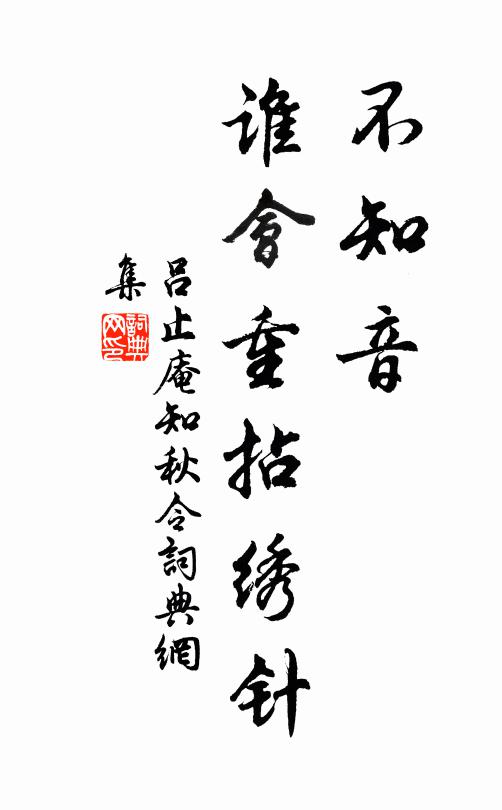 不知音
谁會重拈绣针
吕止庵知秋令詞典網
集
詞典网印